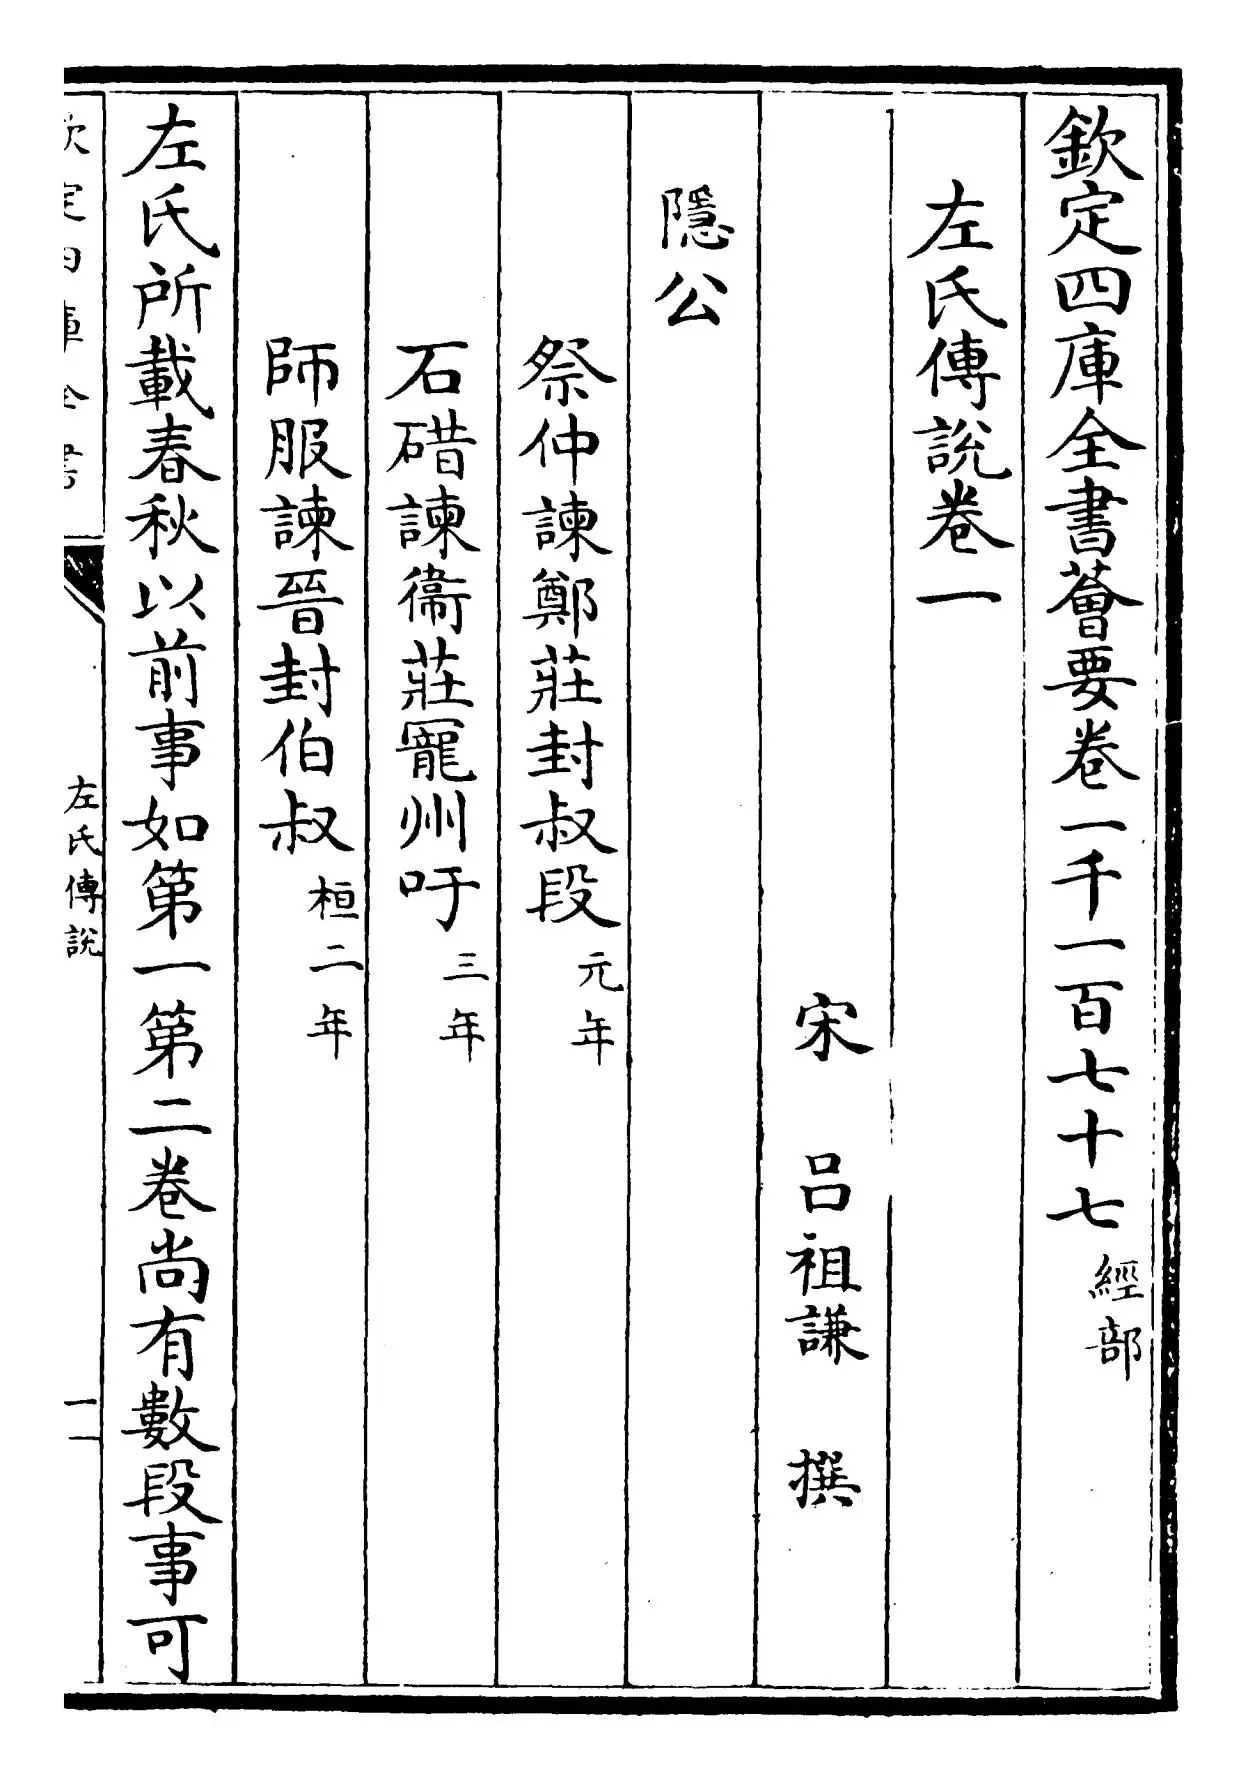 欽定四庫全書薈要卷一千一百七十七 經部
左氏傳說卷一
宋 呂祖謙 撰
隱公
祭仲諫鄭莊封叔段 元年
石碏諫衞莊寵州吁 三年
師服諫晉封伯叔 桓二年
左氏所載春秋以前事如第一第二卷尚有數段事可
欽定四庫全書
左氏傳說
一